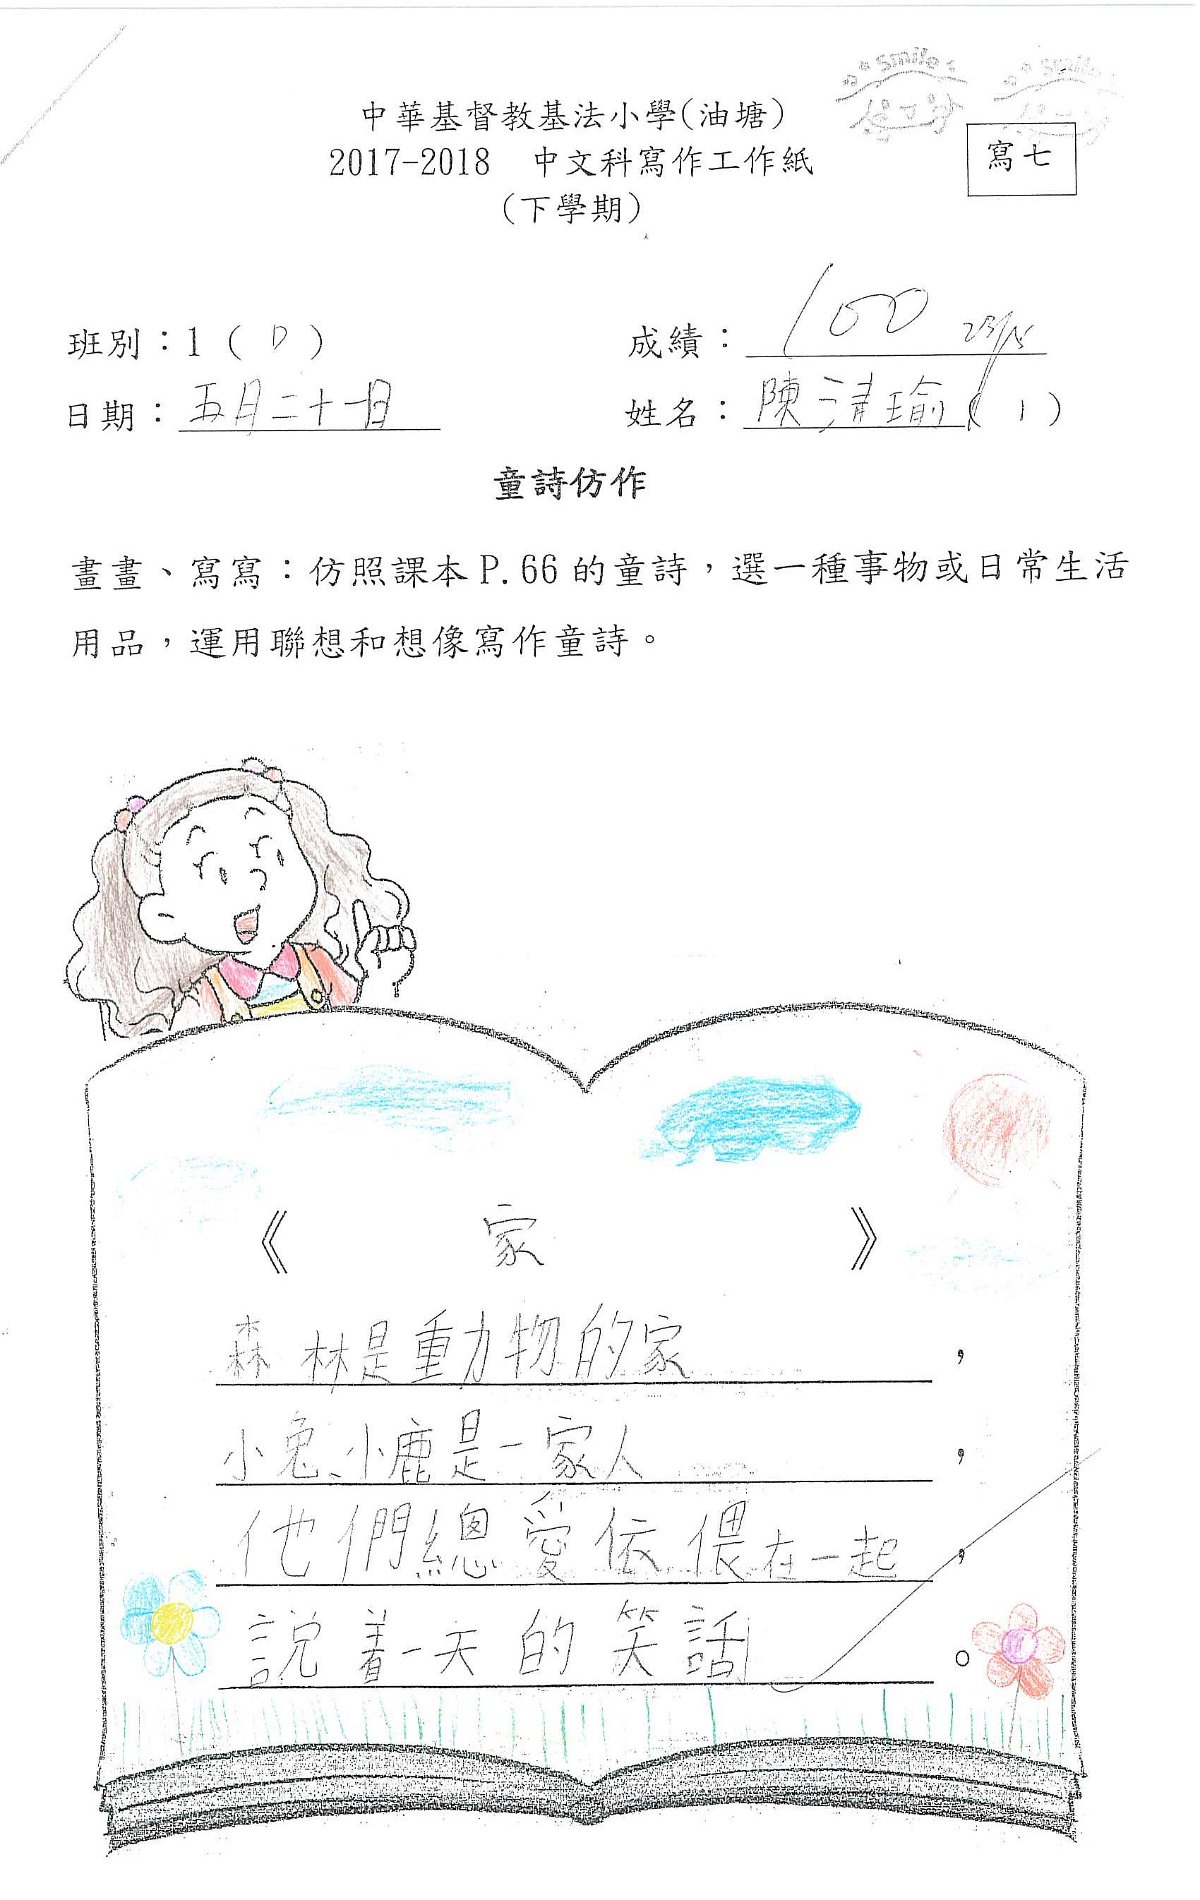 Smile
中華基督教基法小學(油塘)
2017-2018 中文科寫作工作紙
寫七
(下學期)
班別：1 ( D )
成績： 100 23/5
日期： 五月二十一日
姓名： 陳清瑜 ( 1 )
童詩仿作
畫畫、寫寫：仿照課本P.66的童詩，選一種事物或日常生活
用品，運用聯想和想像寫作童詩。
《 家 》
森林是動物的家，
小兔、小鹿是一家人，
他們總愛依偎在一起，
說着一天的笑話。